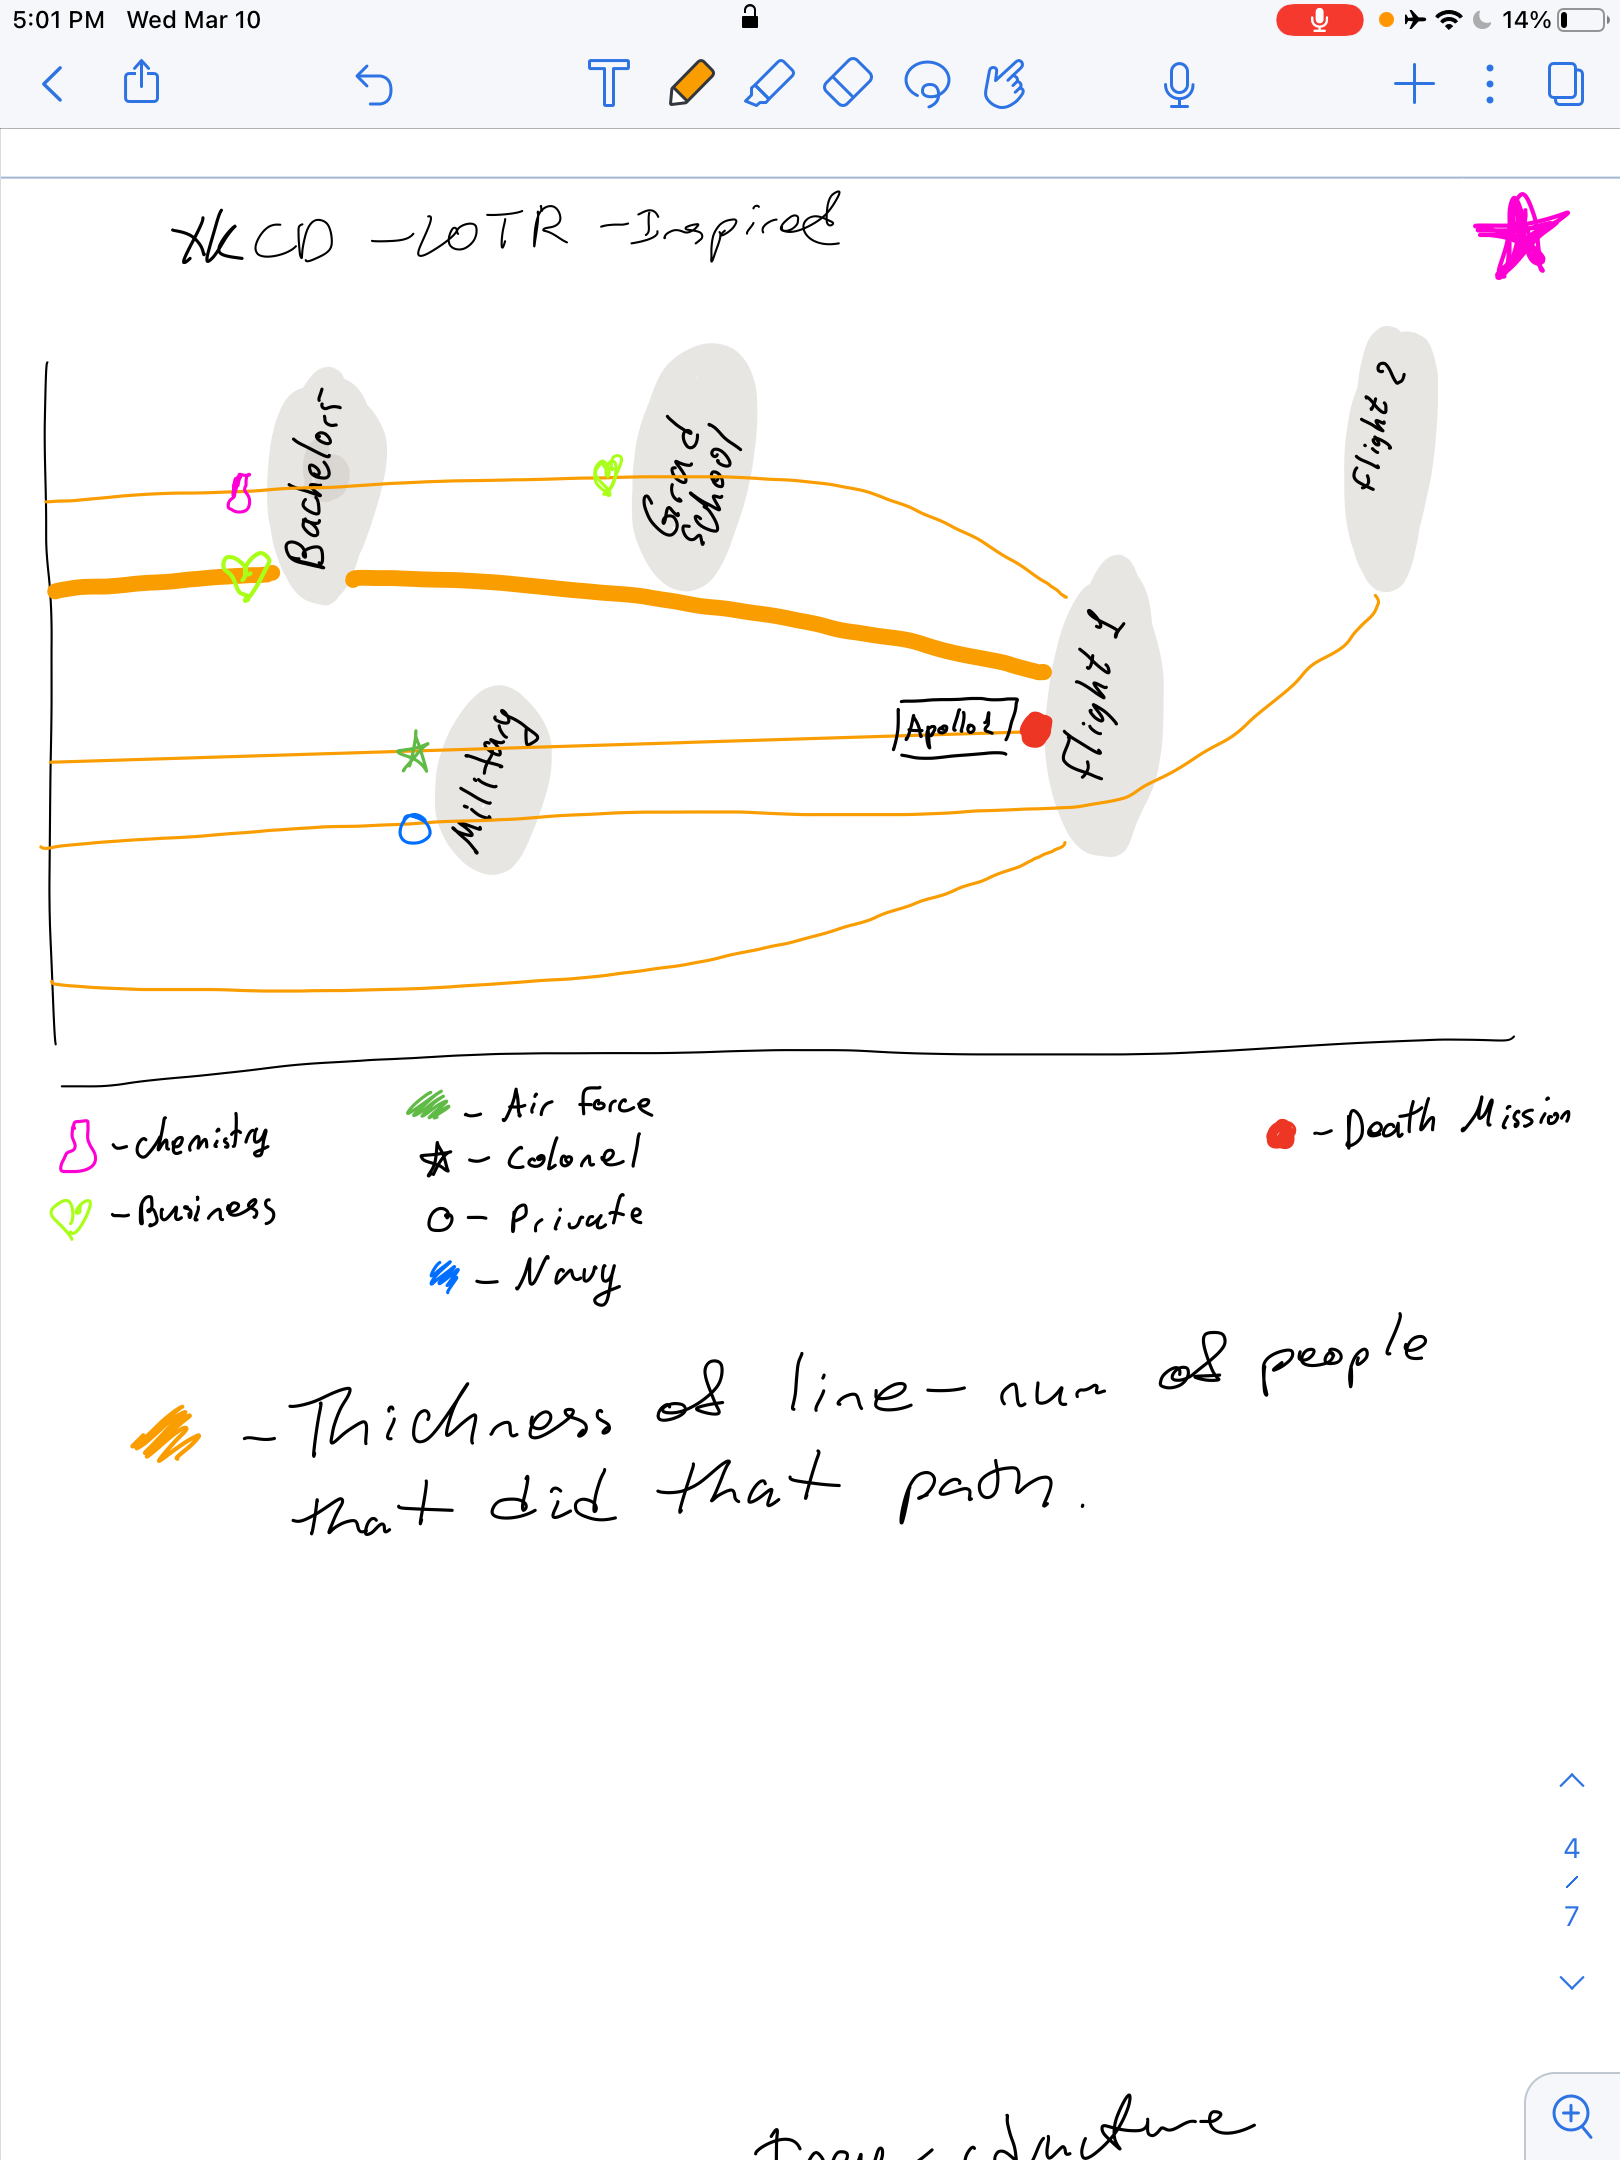 5:01 PM Wed Mar 10
14%
XKCD - LOTR - Inspired
Bachelors
Grad
School
Flight 2
Flight 1
Apollo 1
Military
- Chemistry
- Business
- Air Force
- Colonel
- Private
- Navy
- Death Mission
- Thickness of line - num of people
that did that path.
4
/
7
structure